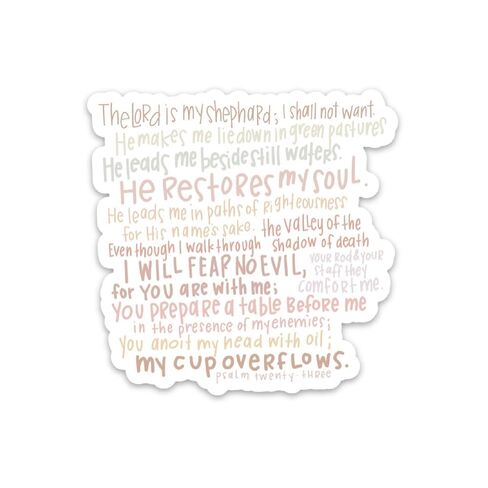 The LORD is my shephard; I shall not want.
He makes me lie down in green pastures
He leads me beside still waters.
He Restores my soul.
He leads me in paths of Righteousness
for His name's sake.
Even though I walk through the valley of the shadow of death
I WILL FEAR NO EVIL,
for YOU are with me;
your Rod & your staff they comfort me.
YOU PREPARE a table Before me
in the presence of my enemies;
You anoit my head with oil;
my CUP OVERFLOWS.
psalm twenty-three